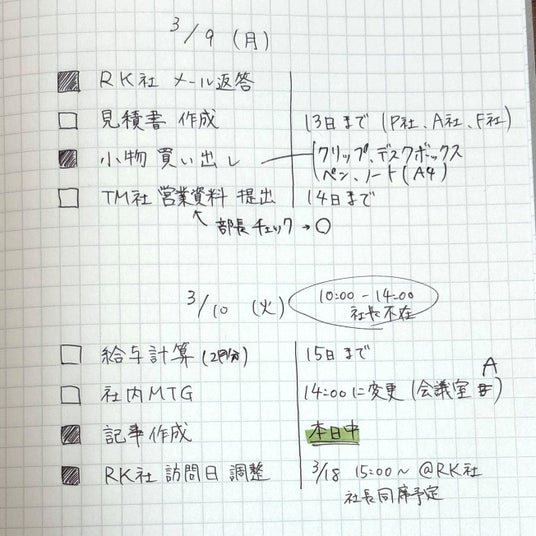 3/9 (月)
RK社 メール返答
見積書 作成 13日まで (P社、A社、F社)
小物 買い出し クリップ、デスクボックス
ペン、ノート(A4)
TM社 営業資料 提出 14日まで
部長チェック→○
3/10 (火) 10:00-14:00
社長不在
給与計算(2月分) 15日まで
社内MTG 14:00に変更 (会議室 A)
記事作成 本日中
RK社 訪問日 調整 3/18 15:00〜 @RK社
社長同席予定